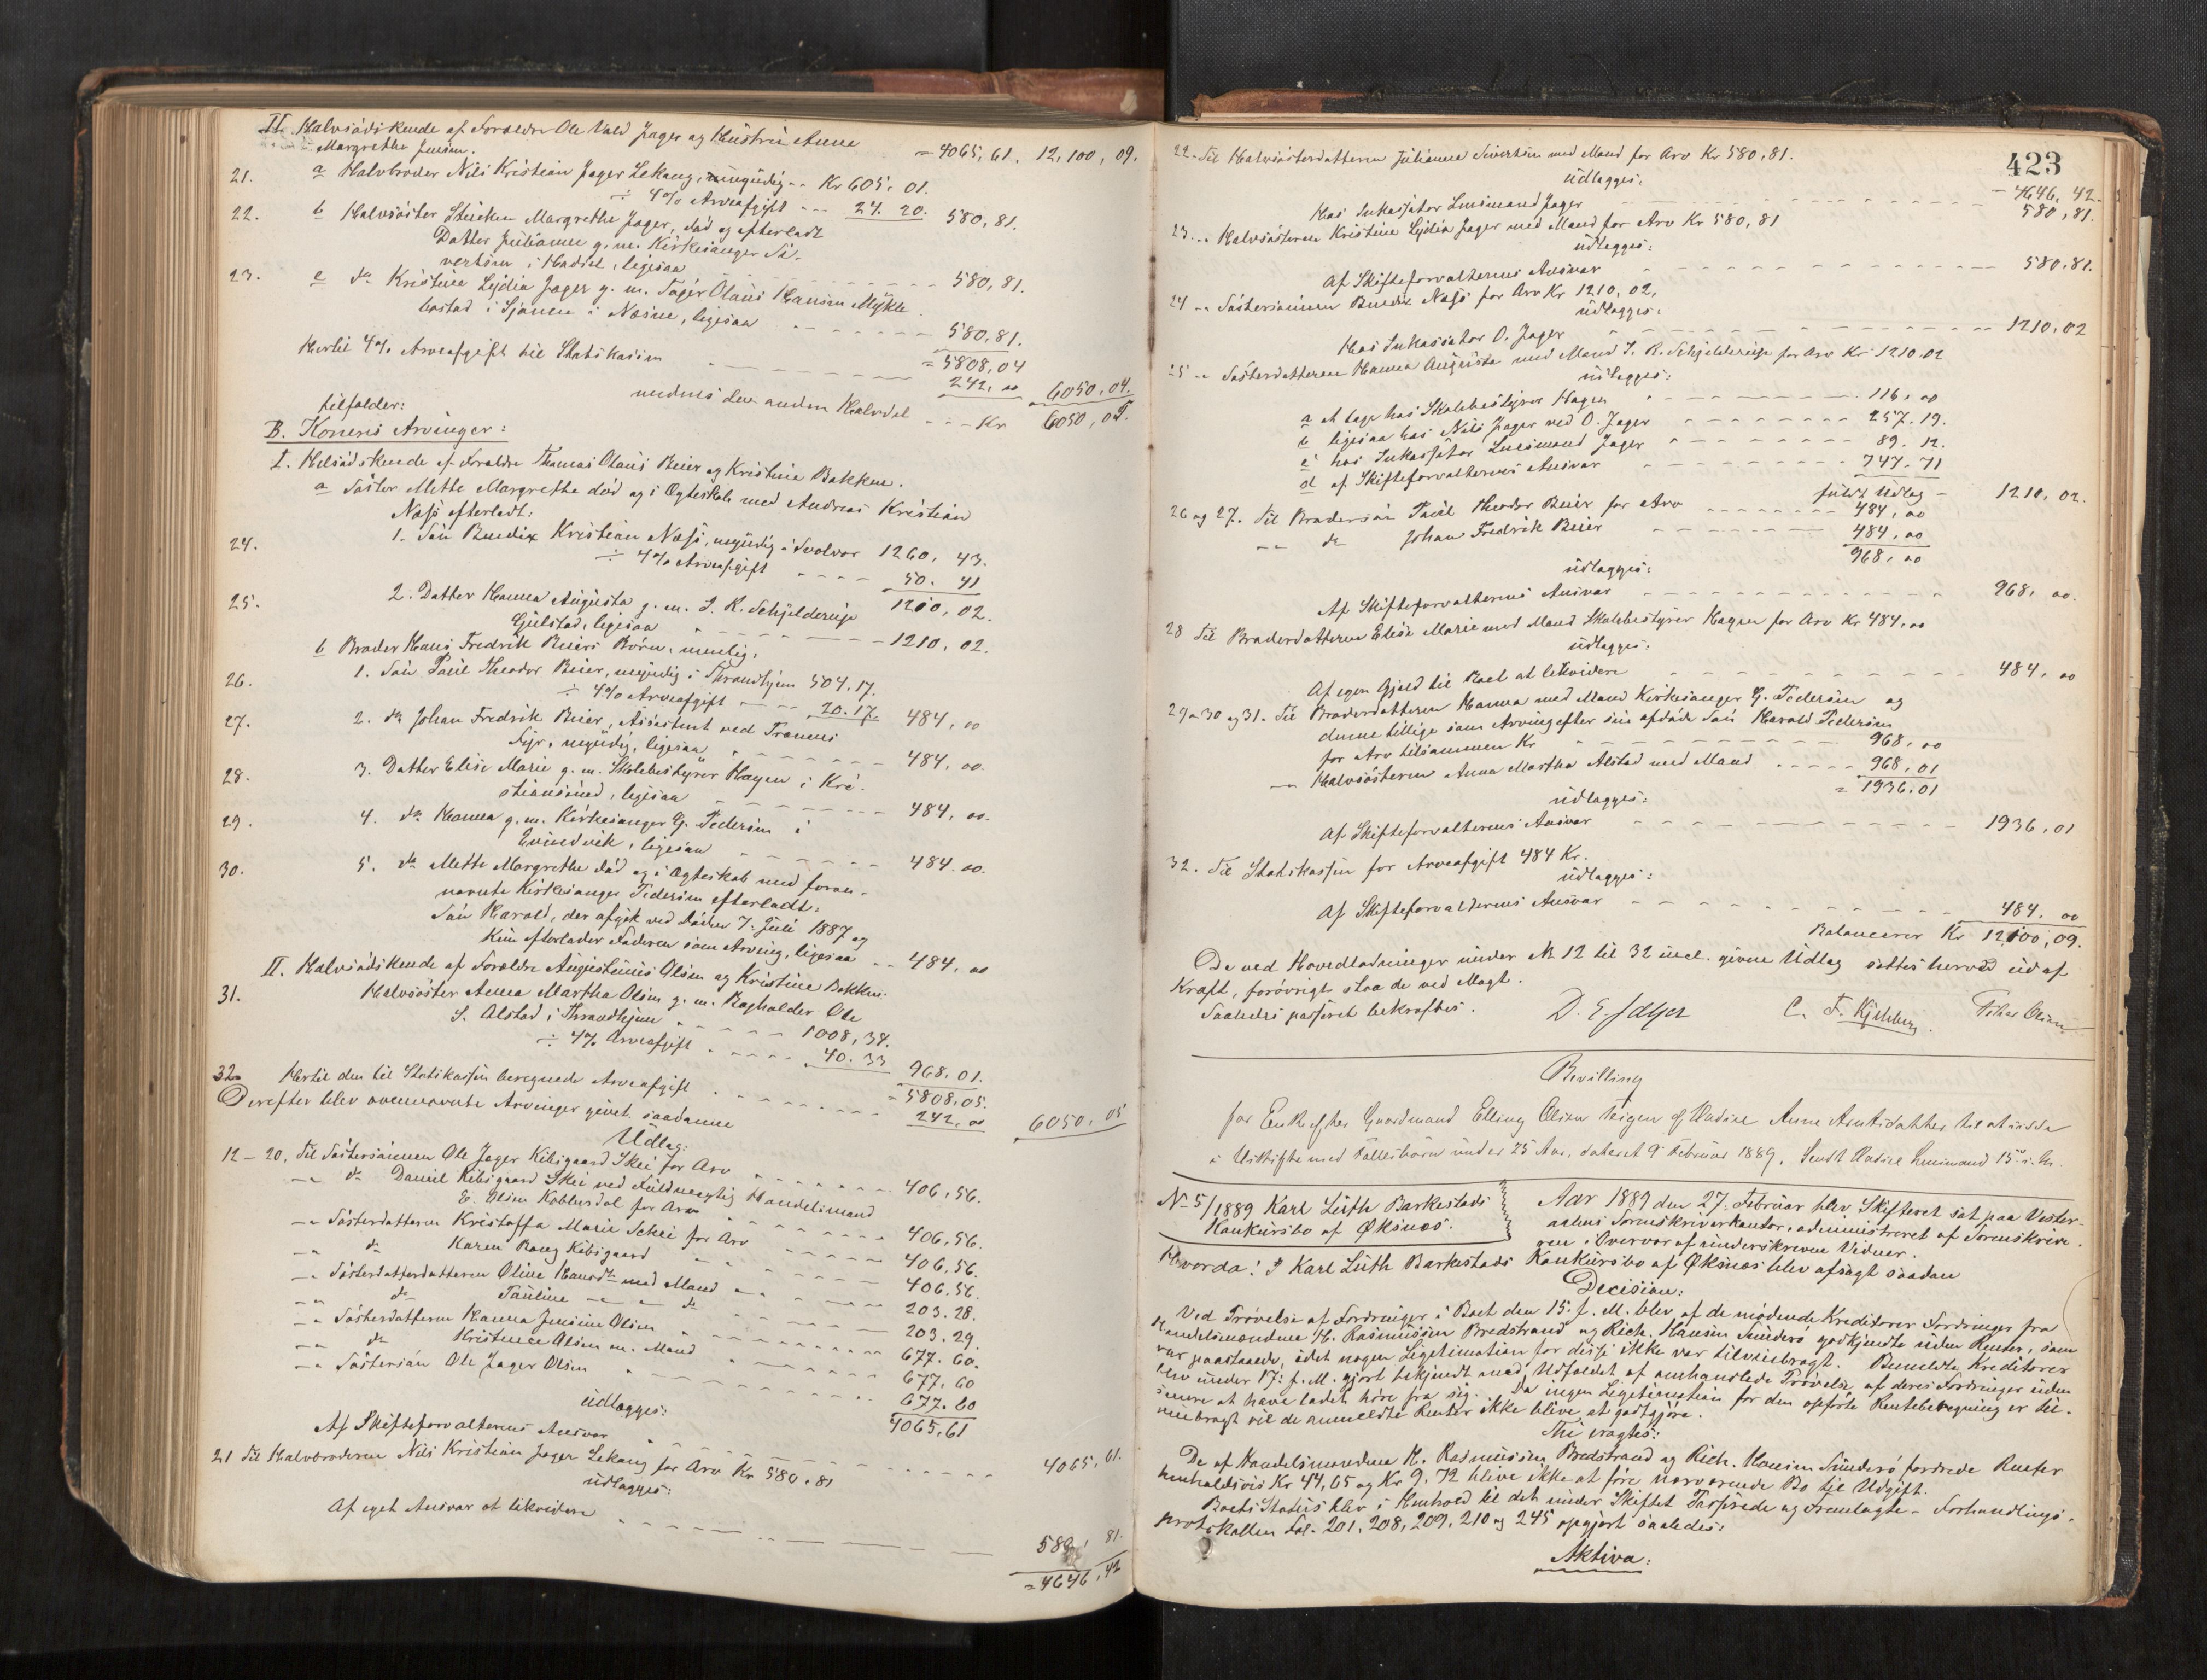 II Halvsødskende af Forældre Ole Vold Jager og Hustru Anne
Margrethe Jensen. = 4065,61. 12,100,09.
21. a Halvbroder Nils Kristian Jager Lekang, umyndig -- Kr 605,01.
÷ 4% Arveafgift -- 24.20. 580,81.
22. b Halvsøster Margrethe Jager, død og efterladt
Datter Julianne g.m. Kirkesanger Si-
vertsen i Hadsel, ligesaa 580,81.
23. c do Kristine Lydia Jager g.m. Olaus Hansen Mykle-
bostad i Sjonen i Næsne, ligesaa 580,81.
= 5808,04
Hertil 4% Arveafgift til Statskassen 242,00 6050,04.
medens den anden Halvdel -- Kr 6050,05.
tilfalder:
B. Konens Arvinger:
I. Helsødskende af Forældre Thomas Olaus Beier og Kristine Bakken.
a Søster Mette Margrethe død og i Ægteskab med Andreas Kristian
Næsø efterladt:
24. 1. Søn Bendix Kristian Næsø, myndig i Svolvær 1260,43.
÷ 4% Arveafgift 50.41
1210,02.
25. 2. Datter Hanna Augusta g.m. J. R. Schjelderup
Gulstad, ligesaa 1210,02.
b Broder Hans Fredrik Beiers Børn, nemlig:
26. 1. Søn Paul Theodor Beier, myndig i Throndhjem 504,17.
÷ 4% Arveafgift 20.17. 484,00
27. 2. do Johan Fredrik Beier, Assistent ved Trænens
Fyr, myndig, ligesaa 484,00.
28. 3. Datter Elise Marie g.m. Skolebestyrer Hagen i Kri-
stianssund, ligesaa 484,00.
29. 4. do Hanna g.m. Kirkesanger G. Pedersen i
Evindvik, ligesaa 484.00.
30. 5. do Mette Margrethe død og i Ægteskab med foran-
nævnte Kirkesanger Pedersen efterladt:
Søn Harald, der afgik ved Døden 7. Juli 1887 og
kun efterlader Faderen som Arving, ligesaa -- 484,00
II. Halvsødskende af Forældre Augustinus Olsen og Kristine Bakken.
31. Halvsøster Anna Martha Olsen g.m. Bogholder Ole
S. Alstad i Throndhjem 1008,34.
÷ 4% Arveafgift 40.33 968,01.
= 5808,05.
32. Hertil den til Statskassen beregnede Arveafgift 242,00 6050,05
Derefter blev ovennævnte Arvinger givet saadanne
Udlæg:
12-20. Til Søstersønnen Ole Jager Kibsgaard Skei for Arv 406,56.
-" do Daniel Kibsgaard Skei ved Fuldmægtig Handelsmand
E. Olsen Kobbersdal for Arv 406,56.
-" Søsterdatteren Kristoffa Marie Schei for Arv 406,56.
-" do Karen Kibsgaard 406.56.
-" Søsterdatterdatteren Oline Hansdr med Mand 203.28.
-" do Pauline -" do 203.29.
-" Søsterdatteren Hanna Jensine Olsen 677.60.
-" do Kristence Olsen m. Mand 677,60
-" Søstersøn Ole Jager Olsen 677.60
4065,61
udlægges:
Af Skifteforvalterens Ansvar 4065,61.
21 Til Halvbroderen Nils Kristian Jager Lekang for Arv Kr 580,81
udlægges:
Af eget Ansvar at likvidere 580,81.
= 4646,42
423
= 4646,42.
22. Til Halvsøsterdatteren Julianne Sivertsen med Mand for Arv Kr 580,81.
udlægges:
Hos Inkassator Lensmand Jager 580,81.
23. -" Halvsøsteren Kristine Lydia Jager med Mand for Arv Kr 580,81
udlægges:
Af Skifteforvalterens Ansvar 580.81.
24 -" Søstersønnen Bendix Næsø for Arv Kr 1210,02,
udlægges:
Hos Inkassator O. Jager 1210,02
25 -" Søsterdatteren Hanna Augusta med Mand J. R. Schjelderup for Arv Kr 1210.02
udlægges:
a at tage hos Skolebestyrer Hagen 116,00
b ligesaa hos Nils Jager ved O. Jager 257.19.
c hos Inkassator Lensmand Jager 89.12.
d af Skifteforvalterens Ansvar 747.71
fuldt Udlæg - 1210,02.
26 og 27. Til Brodersøn Paul Theodor Beier for Arv 484,00
-" do Johan Fredrik Beier 484,00
968,00
udlægges:
Af Skifteforvalterens Ansvar 968,00.
28 Til Broderdatteren Elise Marie med Mand Skolebestyrer Hagen for Arv Kr 484,00
udlægges:
Af egen Gjæld til Boet at likvidere 484,00
29, 30 og 31. Til Broderdatteren Hanna med Mand Kirkesanger G. Pedersen og
denne tillige som Arving efter sin afdøde Søn Harald Pedersen
for Arv tilsammen Kr 968,00
-" Halvsøsteren Anna Martha Alstad med Mand 968,01
= 1936.01
udlægges:
Af Skifteforvalterens Ansvar 1936,01
32. Til Statskassen for Arveafgift 484 Kr.
udlægges:
Af Skifteforvalterens Ansvar 484,00
Balancerer Kr 12,100,09.
De ved Hovedladninger under No 12 til 32 incl. givne Udlæg sættes herved ud af
Kraft, forøvrigt staa de ved Magt.
Saaledes passeret bekræftes.
Bevilling
for Enke efter Gaardmand Elling Olsen af Hadsel Anne Arntsdatter til at sidde
i Uskifte med Fællesbørn under 25 Aar, dateret 9 Februar 1889. Sendt Hadsel Lensmand 15 s.M.
No 5/1889 Karl Lüth Barkestads
Konkursbo af Øksnæs.
Aar 1889 den 27. Februar blev Skifteret sat paa Vester-
aalens Sorenskriverkontor, administreret af Sorenskrive-
ren i Overvær af underskrevne Vidner.
Hvorda: I Karl Lüth Barkestads Konkursbo af Øksnæs blev afsagt saadan
Decision:
Ved Prøvelse af Fordringer i Boet den 15. f. M. blev af de mødende Kreditorer Fordringer fra
Handelsmændene H. Rasmussen Bredstrand og Rich. Hansen Sunderø godkjendte uden Renter, som
var paastaaede, idet nogen Legitimation for disse ikke var tilveiebragt. Bemeldte Kreditorer
blev under 17. f. M. gjort bekjendt med Udfaldet af omhandlede Prøvelse af deres Fordringer uden
senere at have ladet høre fra sig. Da ingen Legitimation for den opførte Renteberegning er til-
veiebragt vil de anmeldte Renter ikke blive at godtgjøre.
Thi eragtes:
De af Handelsmændene H. Rasmussen Bredstrand og Rich. Hansen Sunderø fordrede Renter
henholdsvis Kr 44,65 og Kr 9.72 blive ikke at føre nærværende Bo til Udgift.
Boets Status blev i Henhold til det under Skiftet Passerede og Fremlagte - Forhandlings-
protokollen Fol. 201, 208, 209, 210 og 245 opgjort saaledes:
Aktiva: